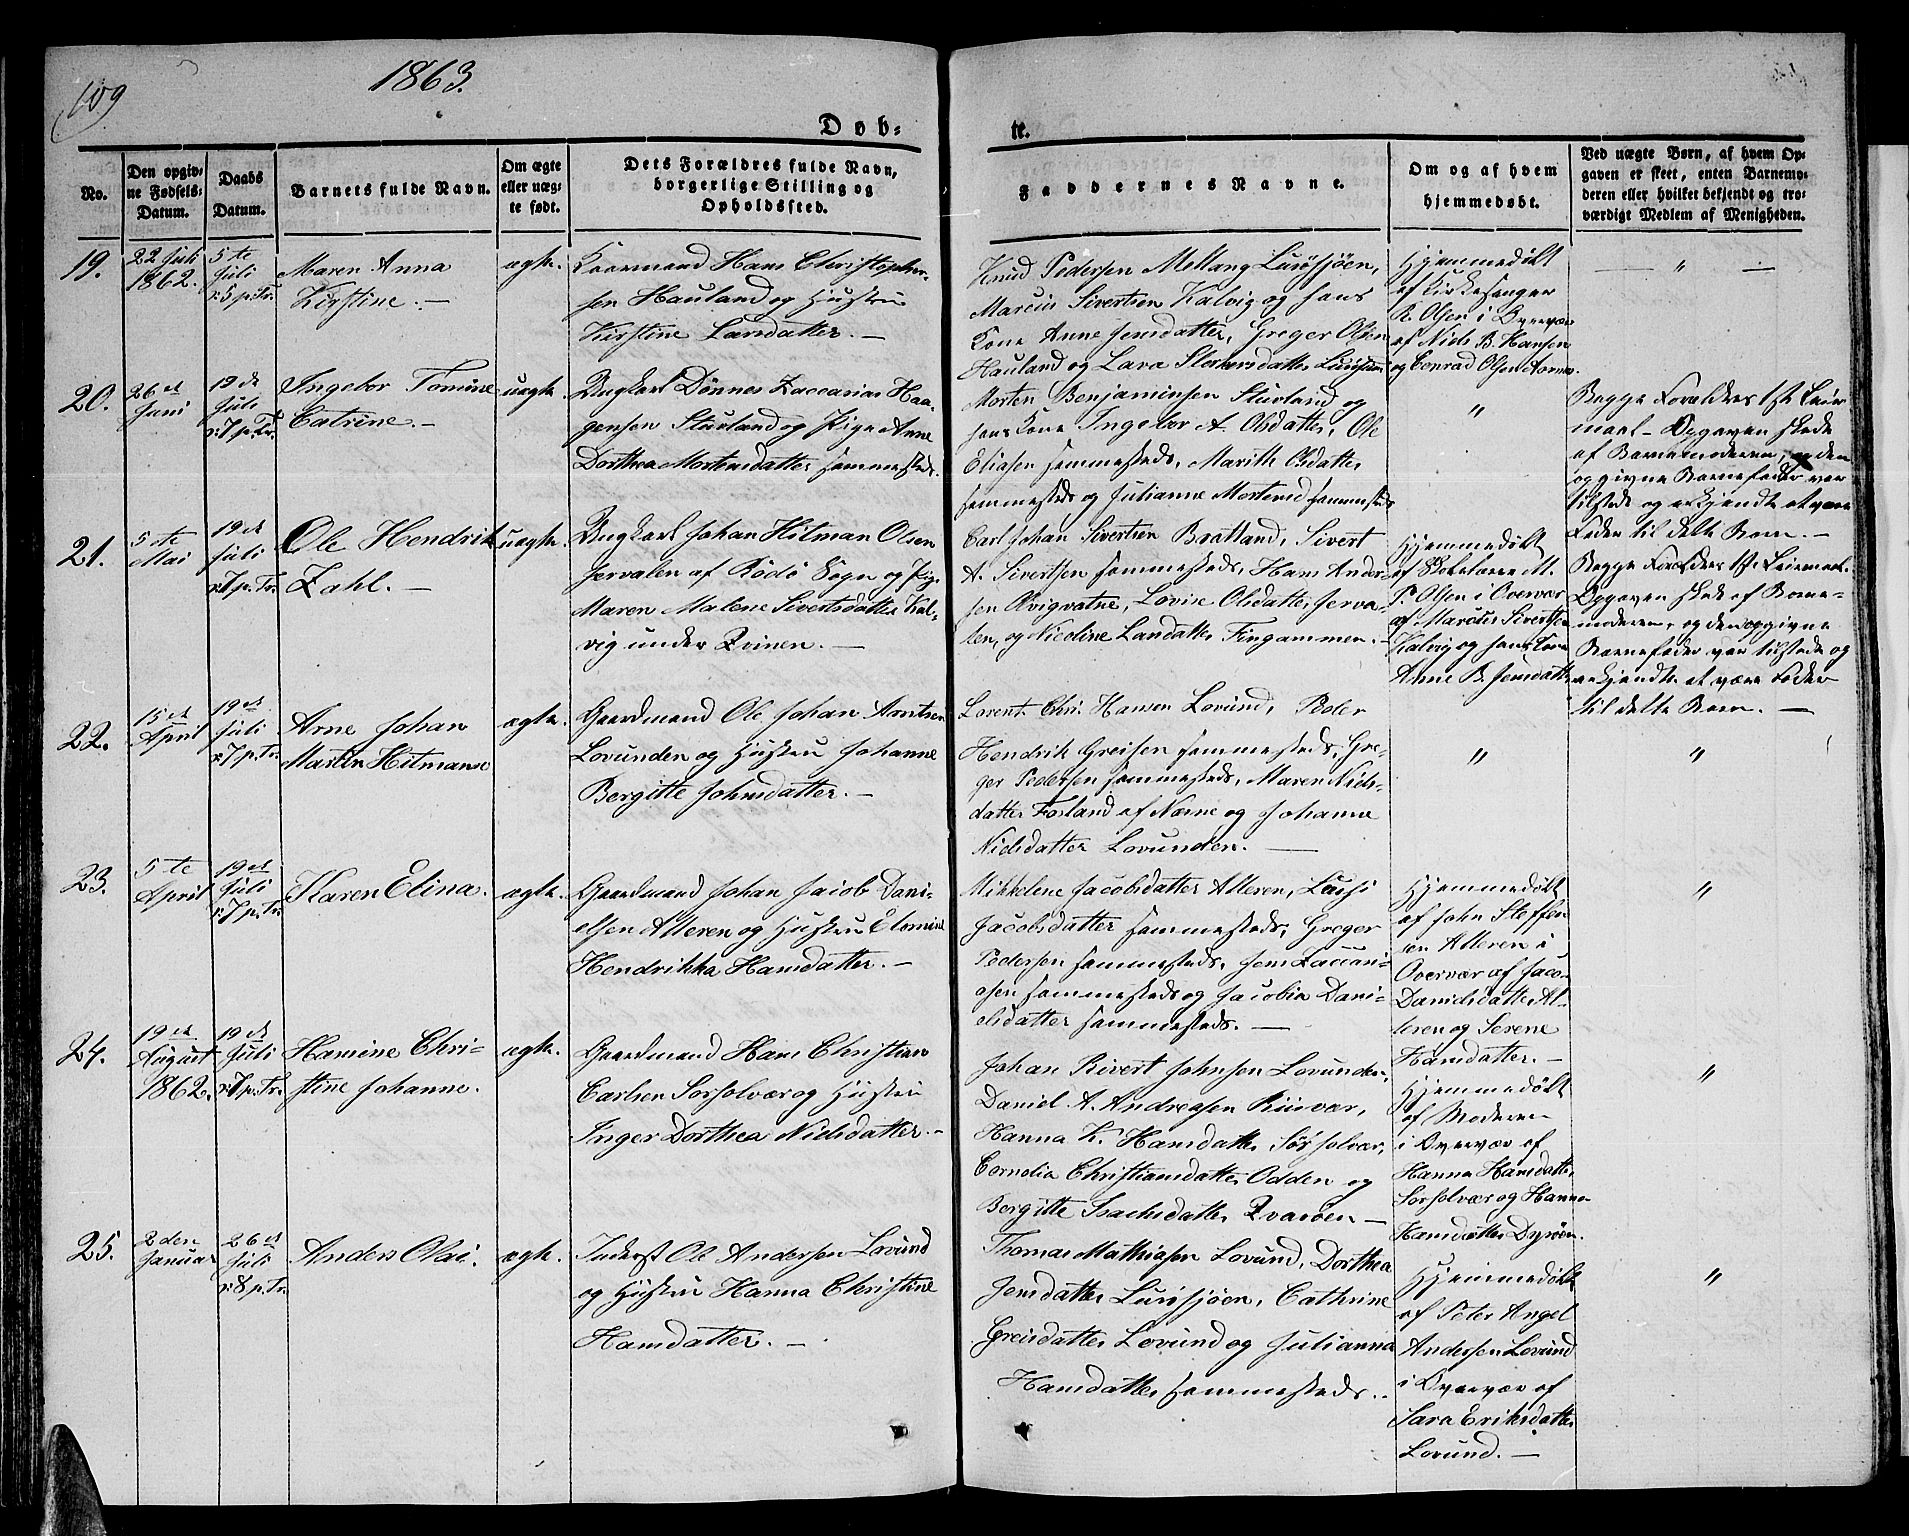 109
1863.
Døb-
te.
No.
Den opgiv-
ne Fødsels-
Datum.
Daabs
Datum.
Barnets fulde Navn.
Om ægte
eller uæg-
te født.
Dets Forældres fulde Navn,
borgerlige Stilling og
Opholdssted.
Faddernes Navne.
Om og af hvem
hjemmedøbt.
Ved uægte Børn, af hvem Op-
gaven er skeet, enten Barnemo-
deren eller hvilket bekjendt og tro-
værdigt Medlem af Menigheden.
19.
22 Juli
1862.
5te
Juli
5 p. Tr.
Maren Anna
Kirstine. —
ægte.
Hans Christopher-
sen Hauland og Hustru
Kirstine Larsdatter. —
Knud Pedersen Mellang Lurøsjøen,
Marcus Sivertsen Kalvig og hans
Kone Anne Jensdatter, Greger Olsen
Hauland og Lara
Hjemmedøbt
af Kirkesanger
R. Olsen i Overvær
af Niels B. Hansen
og Conrad Olsen
— " —
20.
26et
Juni
19de
Juli
7 p. Tr.
Ingebor Tomine
Catrine. —
uægte.
Ungkarl Dønnes Zaccarias Haa-
gensen Stuvland og Pige Anne
Dorthea Mortensdatter sammesteds.
Morten Benjaminsen Stuvland og
hans Kone Ingebor A. Olsdatter, Ole
Eliasen sammesteds, Marith Olsdatter
sammesteds og Julianne Mortensd. sammesteds
"
Begge Forældres 1ste Leier-
maal — Opgaven skede
af Barnemoderen, og den
opgivne Barnefader var
tilstede og erkjendte at være
Fader til dette Barn. —
21.
5te
Mai
19de
Juli
7 p. Tr.
Ole Hendrik
Zahl. —
uægte.
Ungkarl Johan Hitman Olsen
Jervalen af Rødø Sogn og Pige
Maren Malene Sivertsdatter Kal-
vig under Qvinen. —
Carl Johan Sivertsen Bratland, Sivert
A. Sivertsen sammesteds, Hans Ander-
sen Qvigvatne, Lovise Olsdatter Jerva-
len, og Nicoline Larsdatter Fingammen. —
Hjemmedøbt
af Skolelærer M.
P. Olsen i Overvær
af Marcus Sivertsen
Kalvig og hans Kone
Anne B. Jensdatter
Begge Forældres 1ste Leiermaal.
Opgaven skede af Barne-
moderen, og den opgivne
Barnefader var tilstede og
erkjendte at være Fader
til dette Barn. —
22.
15et
April
19de
Juli
7 p. Tr.
Arne Johan
Martin Hitmann
ægte.
Gaardmand Ole Johan Arntsen
Lovunden og Hustru Johanne
Bergitte Johnsdatter. —
Lorents Chr. Hansen Lovund, Peder
Hendrik Greisen sammesteds, Gre-
ger Pedersen sammesteds, Maren Niels-
datter Forland af Næsne og Johanna
Nielsdatter Lovunden. —
"
"
23.
5te
April
19de
Juli
7 p. Tr.
Karen Elina.
ægte.
Gaardmand Johan Jacob Dani-
elsen Alteren og Hustru Elomine
Hendrikka Hansdatter. —
Mikkeline Jacobsdatter Alteren, Lussi
Jacobsdatter sammesteds, Greger
Pedersen sammesteds, Jens Zaccari-
asen sammesteds og Jacobia Dani-
elsdatter sammesteds. —
Hjemmedøbt
af John Steffen-
sen Alteren i
Overvær af Jaco-
Danielsdatter Al-
teren og Serene
Hansdatter. —
"
24.
19et
August
1862.
19de
Juli
7 p. Tr.
Hansine Chri-
stine Johanne.
ægte.
Gaardmand Hans Christian
Carlsen Sørsolvær og Hustru
Inger Dorthea Nielsdatter. —
Johan Sivert Johnsen Lovunden,
Daniel A. Andreasen Riisvær,
Hanna K. Hansdatter Sørsolvær,
Cornelia Christiansdatter Odden og
Bergitte Isachsdatter Qvarøen —
Hjemmedøbt
af Moderen
i Overvær af
Hanna Hansdatter
Sørsolvær og Hanna
Hansdatter Dyrøen.
"
25.
2den
Januar
26et
Juli
8 p. Tr.
Anders Olai.
ægte.
Inderst Ole Andersen Lovund
og Hustru Hanna Christine
Hansdatter. —
Thomas Mathiasen Lovund, Dorthea
Jensdatter Lurøsjøen, Cathrine
Greisdatter Lovund og Julianna
Hansdatter sammesteds.
Hjemmedøbt
af Peter Angel
Andersen Lovund
i Overvær af
Sara Eriksdatter
Lovund. —
"